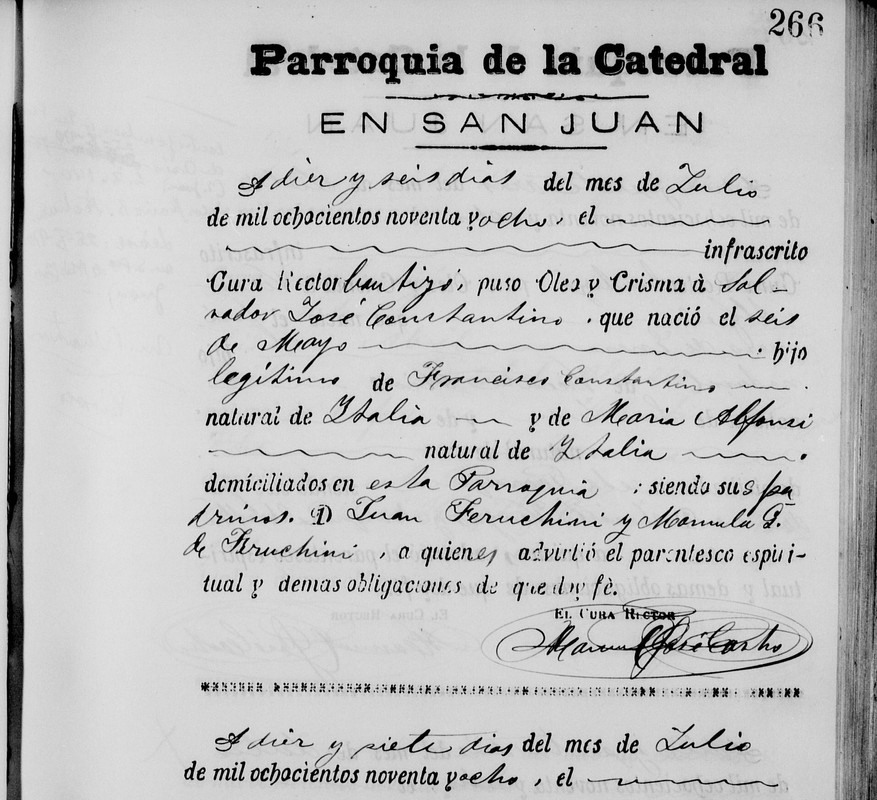 266
Parroquia de la Catedral
EN SAN JUAN
A diez y seis dias del mes de Julio
de mil ochocientos noventa y ocho, el
infrascrito
Cura Rector bautizó, puso Oleo y Crisma à Sal-
vador José Constantino, que nació el seis
de Mayo hijo
legítimo de Francisco Constantino
natural de Italia y de Maria Alfonsi
natural de Italia
domiciliados en esta Parroquia; siendo sus pa
drinos. D Juan Feruchini y Manuela G.
de Feruchini, a quienes advirtió el parentesco espiri-
tual y demas obligaciones de que doy fè.
EL CURA RECTOR
Manuel José Castro
A diez y siete dias del mes de Julio
de mil ochocientos noventa y ocho, el